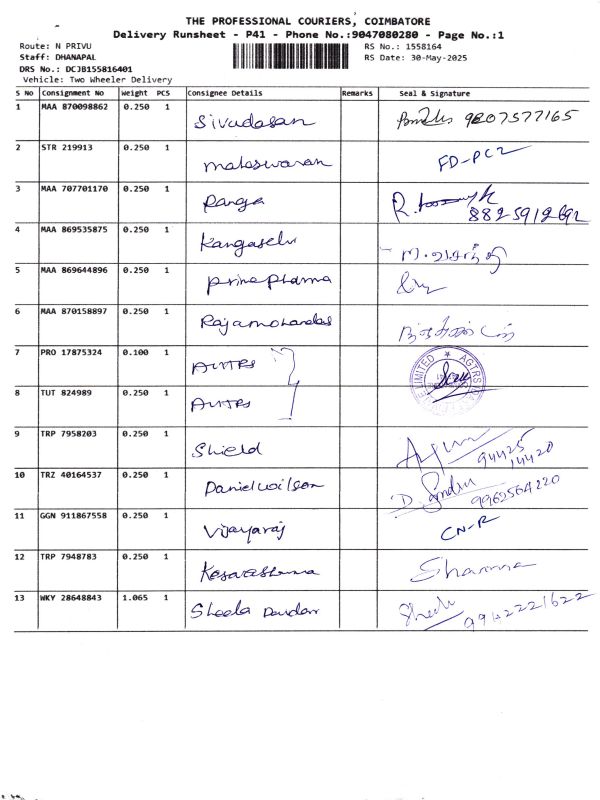 THE PROFESSIONAL COURIERS, COIMBATORE
Delivery Runsheet - P41 - Phone No.:9047080280 - Page No.:1
Route: N PRIVU RS No.: 1558164
Staff: DHANAPAL RS Date: 30-May-2025
DRS No.: DCJB155816401
Vehicle: Two Wheeler Delivery
S No Consignment No Weight PCS Consignee Details Remarks Seal & Signature
1 MAA 870098862 0.250 1 Sivadasan 9807577165
2 STR 219913 0.250 1 maheswaran FD-PC2
3 MAA 707701170 0.250 1 Ranga R.
8825912692
4 MAA 869535875 0.250 1 Kangaselvi
5 MAA 869644896 0.250 1 prime pharma
6 MAA 870158897 0.250 1 Rajamohandas
7 PRO 17875324 0.100 1
8 TUT 824989 0.250 1
9 TRP 7958203 0.250 1 Shield 94425
14420
10 TRZ 40164537 0.250 1 Daniel wilson 9962564220
11 GGN 911867558 0.250 1 Vijayaraj CN-R
12 TRP 7948783 0.250 1 Sharma
13 WKY 28648843 1.065 1 Sheela 9942221622